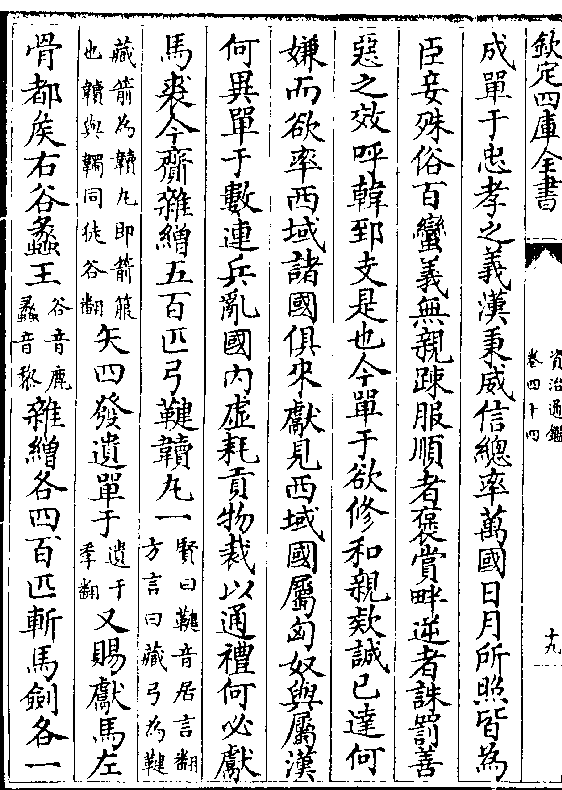 欽定四庫全書
資治通鑑
卷四十四
十九
成單于忠孝之義漢秉威信總率萬國日月所照皆為
臣妾殊俗百蠻義無親踈服順者褒賞畔逆者誅罰善
惡之效呼韓郅支是也今單于欲修和親欵誠已達何
嫌而欲率西域諸國俱來獻見西域國屬匈奴與屬漢
何異單于數連兵亂國內虛耗貢物裁以通禮何必獻
馬裘今齎雜繒五百匹弓鞬韥丸一賢曰鞬音居言翻方言曰藏弓為鞬
藏箭為韥丸即箭箙也韥與韣同徒谷翻矢四發遺單于遺于季翻又賜獻馬左
骨都侯右谷蠡王谷音鹿蠡音黎雜繒各四百匹斬馬劍各一